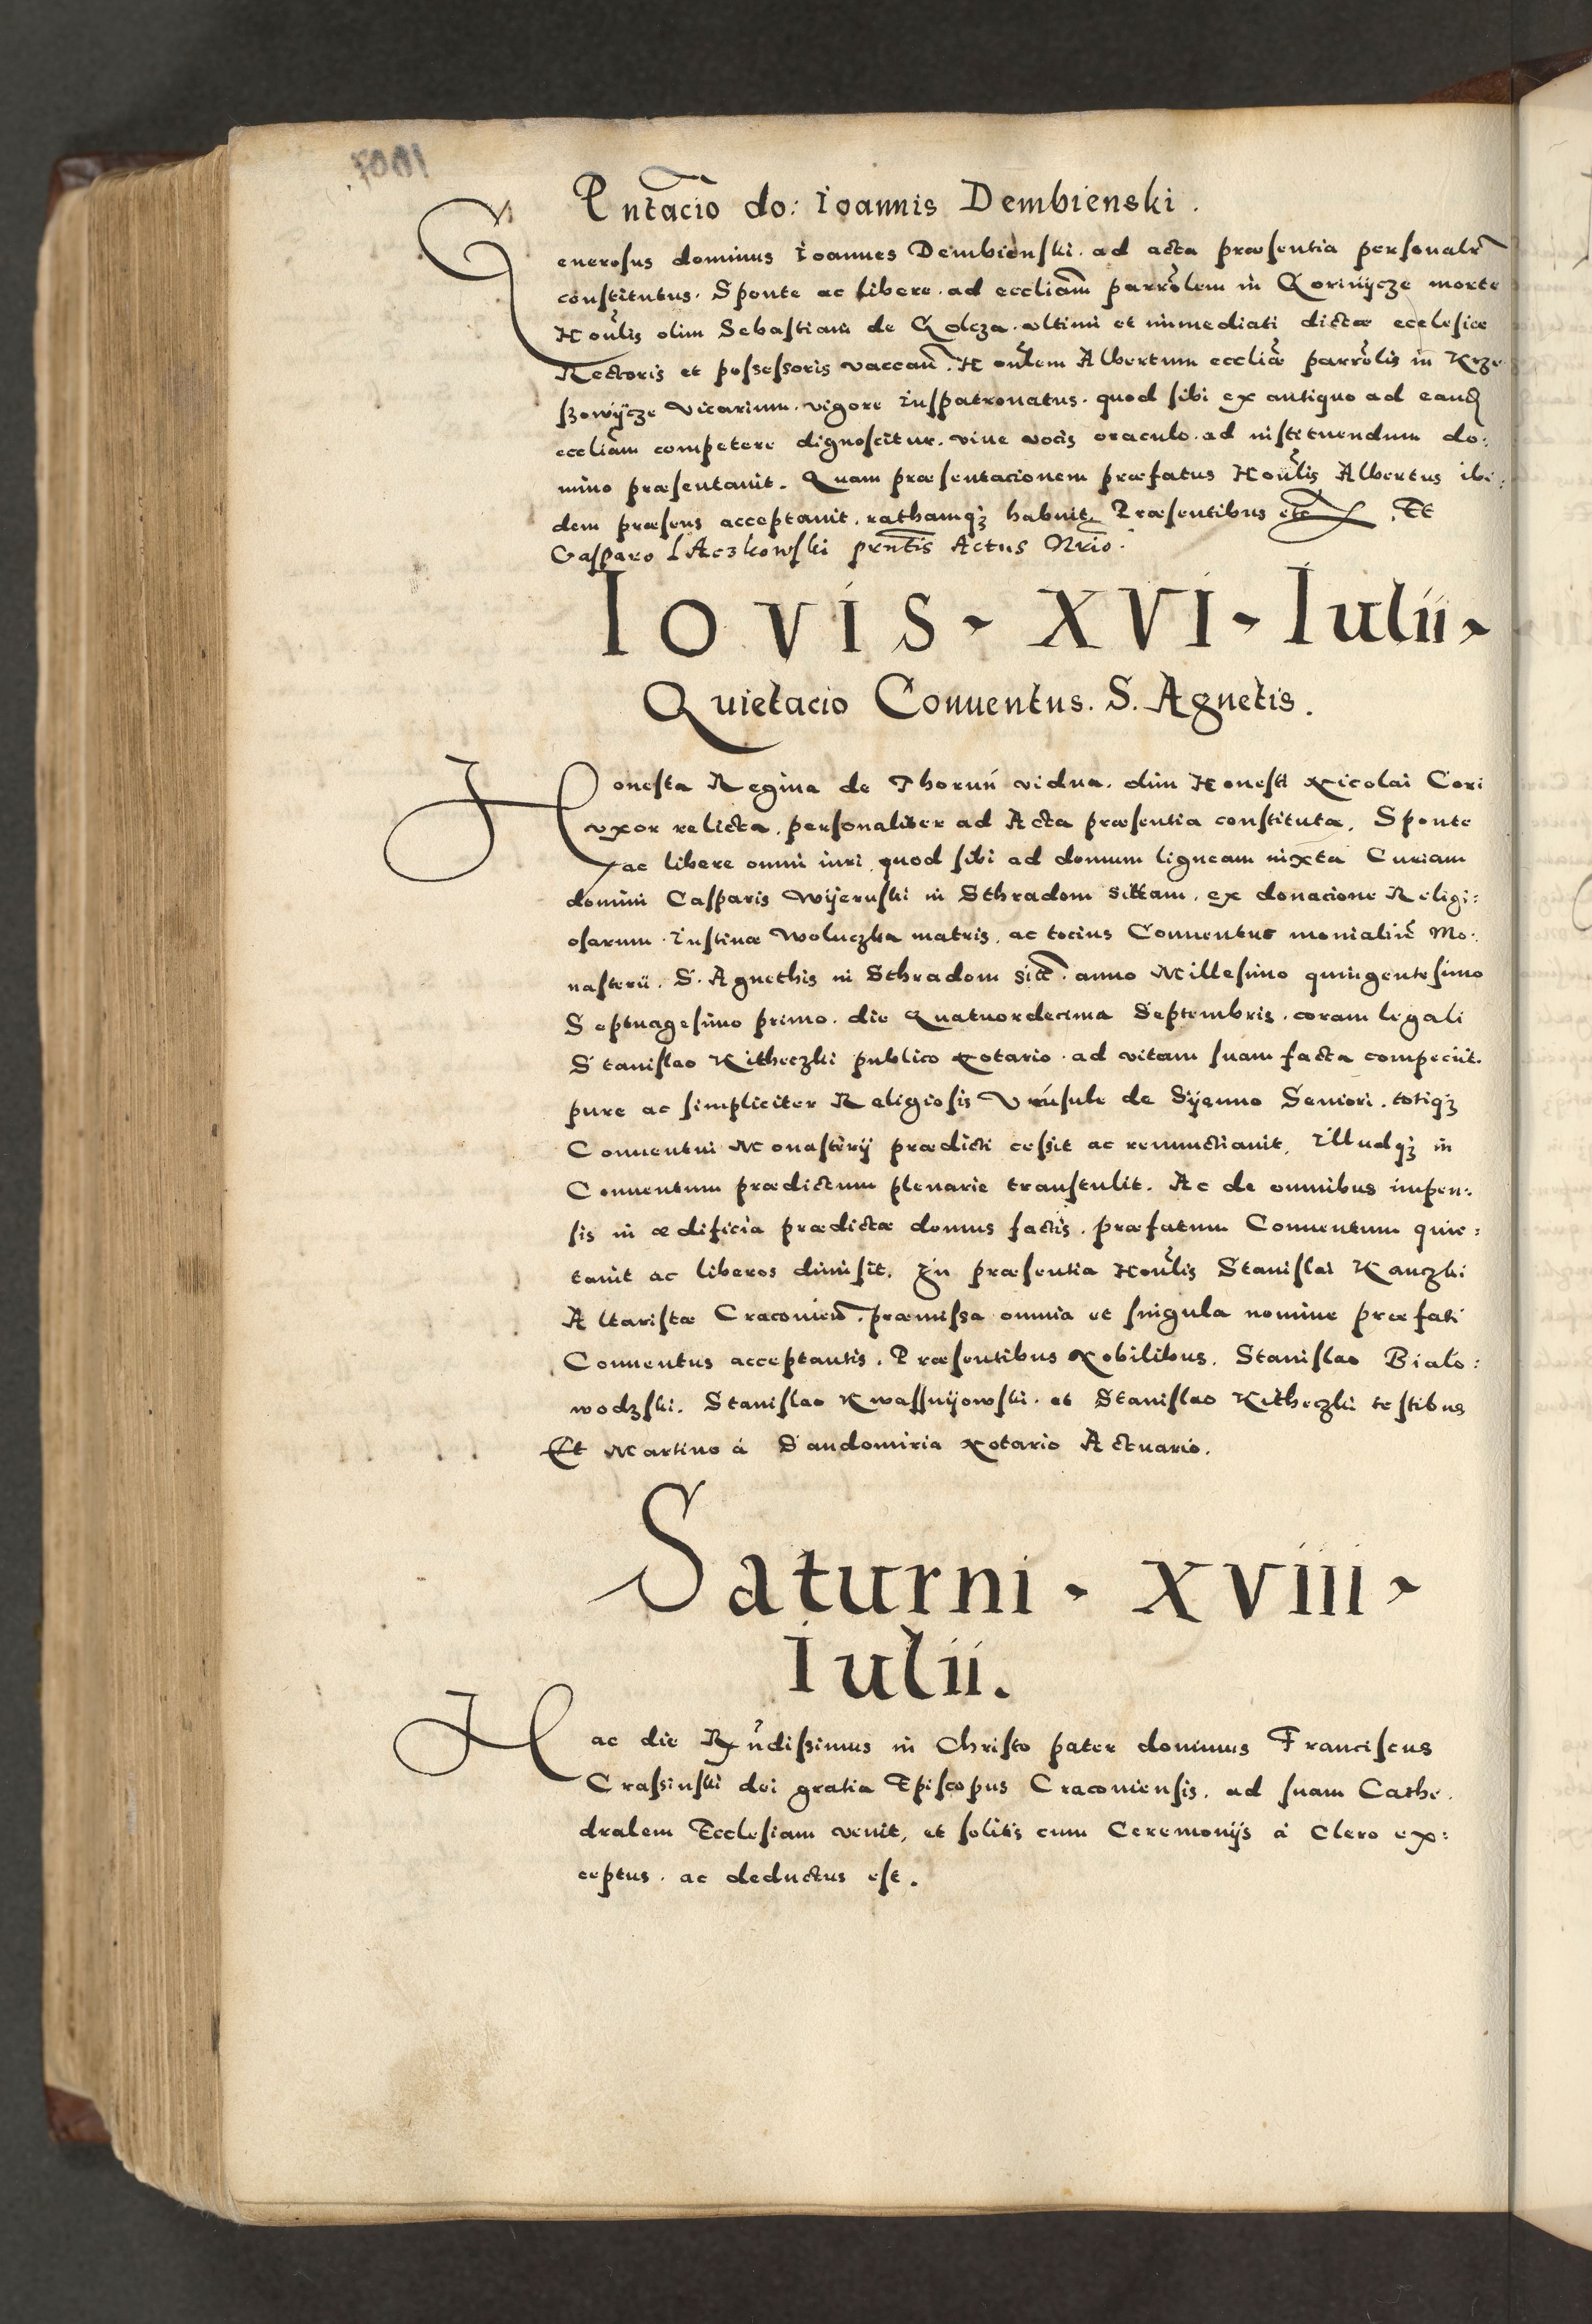 Pntacio do: Ioannis Dembienski.
Generosus dominus Ioannes Dembienski. ad acta præsentia personalr
constitutus. Sponte ac libere. ad eccliam parrolem in Goriiycze morte
Honlis olim Sebastiani de Golcza. ultimi et immediati dictæ ecclesiæ
Rectoris et possessoris vaccan. Honlem Albertum eccliæ parrolis in Krze
szowycze vicarium. vigore iuspatronatus. quod sibi ex antiquo ad eand
eccliam competere dignoscitur. vive vocis oraculo. ad instituendum do:
mino præsentauit. Quam præsentacionem præfatus Honlis Albertus ibi:
dem præsens acceptauit, rathamqz habuit. Præsentibus etc. Et
Gasparo Laczkowski prntis Actus Nrio.
Iovis - XVI - Iulii -
Quietacio Conuentus. S. Agnetis.
Honesta Regina de Thorun vidua. olim Honesti Nicolai Cori
vxor relicta, personaliter ad Acta præsentia constituta, Sponte
ac libere omni iuri quod sibi ad domum ligneam iuxta Curiam
domini Casparis Wijernski in Sthradom sittam, ex donacione Religi:
osarum Iustinæ Woluczka matris, ac tocius Conuentus monialiu Mo:
nasterii. S. Agnethis in Sthradom sitt. anno Millesimo quingentesimo
Septuagesimo primo. die Quatuordecima Septembris. coram legali
Stanislao Kitheczki publico Notario. ad vitam suam facta compeciit.
pure ac simpliciter Religiosis Vrusule de Syenno Seniori. totiqz
Conuentui Monasterij prædicti cessit ac renunctiauit, Illudqz in
Conuentum prædictum plenarie transtulit. Ac de omnibus impen:
sis in ædificia prædictæ domus factis. præfatum Conuentum quie:
tauit ac liberos dimisit. In præsentia Honlis Stanislai Kanczki
Altaristæ Cracouien. præmissa omnia et singula nomine præfati
Conuentus acceptantis. Præsentibus Nobilibus. Stanislao Bialo:
wodzski. Stanislao Kwassnijowski. et Stanislao Kitheczki testibus
Et Martino à Sandomiria Notario Actuario.
Saturni - XVIII -
Iulii.
Hac die Rndissimus in Christo pater dominus Franciscus
Crassinski dei gratia Episcopus Cracouiensis. ad suam Cathe.
dralem Ecclesiam venit, et solitis cum Ceremonijs à Clero ex:
ceptus. ac deductus est.